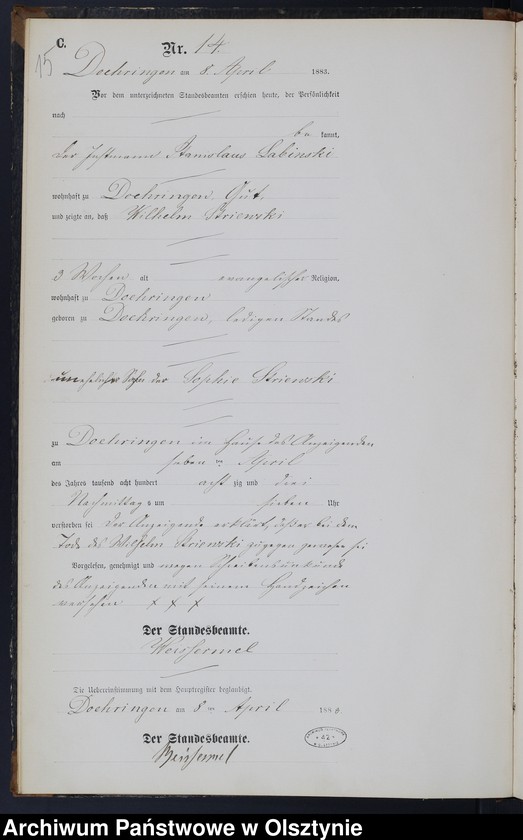 C.
15
Nr. 14.
Doehringen am 8. April 1883.
Vor dem unterzeichneten Standesbeamten erschien heute, der Persönlichkeit
nach
be kannt,
der Instmann Stanislaus Labinski
wohnhaft zu Doehringen, Gut,
und zeigte an, daß Wilhelm Striewski
3 Wochen alt evangelischer Religion,
wohnhaft zu Doehringen
geboren zu Doehringen, ledigen Standes
unehelicher Sohn der Sophie Striewski
zu Doehringen im Hause des Anzeigenden
am sieben ten April
des Jahres tausend acht hundert acht zig und drei
Nachmittag s um sieben Uhr
verstorben sei Der Anzeigende erklärt, daß er bei dem
Tode des Wilhelm Striewski zugegen gewesen sei
Vorgelesen, genehmigt und wegen Schreibensunkunde
des Anzeigenden mit seinem Handzeichen
versehen x x x
Der Standesbeamte.
Weissermel
Die Uebereinstimmung mit dem Hauptregister beglaubigt.
Doehringen am 8 ten April 188
Der Standesbeamte.
Weissermel
Archiwum Państwowe w Olsztynie